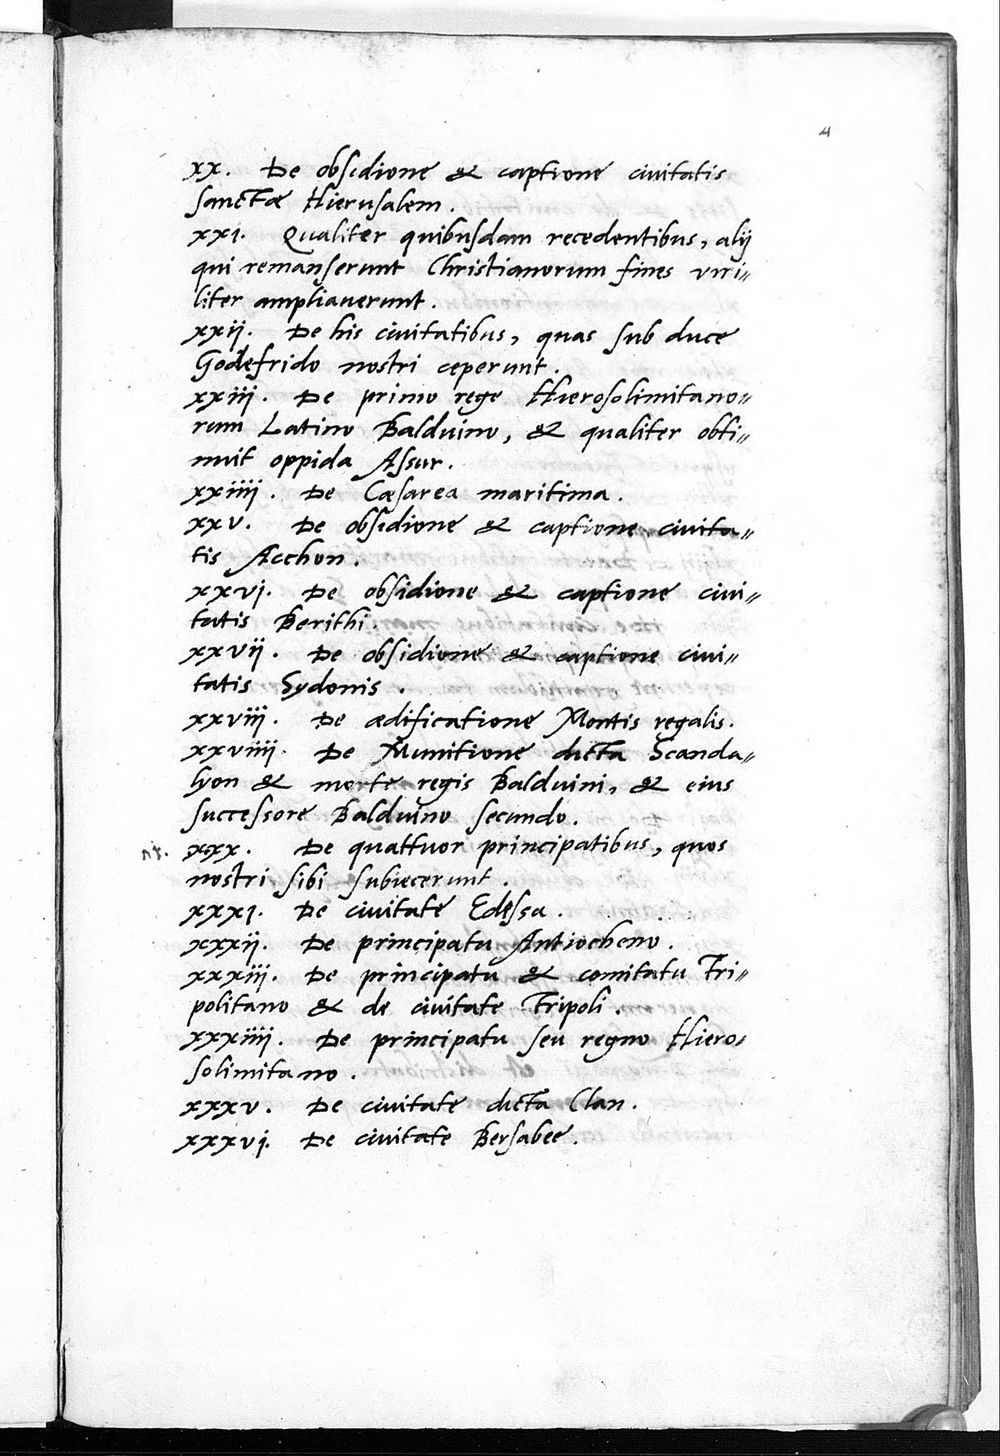 4
xx. De obsidione & captione ciuitatis
sanctæ Hierusalem.
xxi. Qualiter quibusdam recedentibus, alij
qui remanserunt Christianorum fines viri„
liter ampliauerunt.
xxij. De his ciuitatibus, quas sub duce
Godefrido nostri ceperunt.
xxiij. De primo rege Hierosolimitano„
rum Latino Balduino, & qualiter obti„
nuit oppida Assur.
xxiiij. De Cæsarea maritima.
xxv. De obsidione & captione ciuita„
tis Acchon.
xxvj. De obsidione & captione ciui„
tatis Berithi.
xxvij. De obsidione & captione ciui„
tatis Sydonis.
xxviij. De ædificatione Montis regalis.
xxviiij. De Munitione dicta Scanda„
lyon & morte regis Balduini, & eius
successore Balduino secundo.
xxx. De quattuor principatibus, quos
nostri sibi subiecerunt.
xxxj. De ciuitate Edessa.
xxxij. De principatu Antiocheno.
xxxiij. De principatu & comitatu Tri„
politano & de ciuitate Tripoli.
xxxiiij. De principatu seu regno Hiero„
solimitano.
xxxv. De ciuitate dicta Clan.
xxxvj. De ciuitate Bersabee.